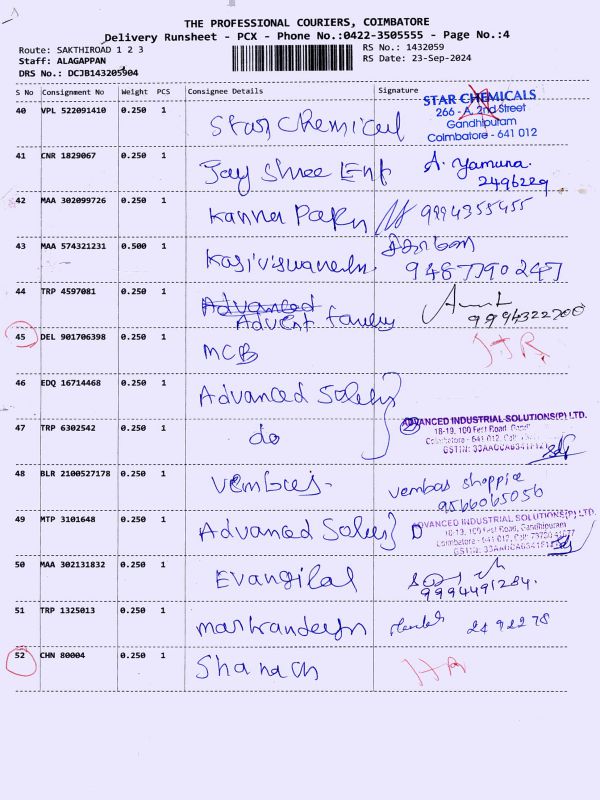 THE PROFESSIONAL COURIERS, COIMBATORE
Delivery Runsheet - PCX - Phone No.:0422-3505555 - Page No.:4
Route: SAKTHIROAD 1 2 3
RS No.: 1432059
Staff: ALAGAPPAN
RS Date: 23-Sep-2024
DRS No.: DCJB143205904
S No Consignment No Weight PCS Consignee Details Signature
40 VPL 522091410 0.250 1 Star Chemical
STAR CHEMICALS
266 - A, 2nd Street
Gandhipuram
Coimbatore - 641 012
41 CNR 1829067 0.250 1 Jay Shree Ent A. Yamuna.
2496229
42 MAA 302099726 0.250 1 Kanna 9994355455
43 MAA 574321231 0.500 1
9487790247
44 TRP 4597081 0.250 1 Advanced
Advent
9994322700
45 DEL 901706398 0.250 1 MCB
46 EDQ 16714468 0.250 1 Advanced
47 TRP 6302542 0.250 1 do
ADVANCED INDUSTRIAL SOLUTIONS(P) LTD.
18-19, 100 Feet Road,
Coimbatore - 641 012,
48 BLR 2100527178 0.250 1 vembas shoppie
9566065056
49 MTP 3101648 0.250 1 Advanced
ADVANCED INDUSTRIAL SOLUTIONS(P) LTD.
18-19, 100 Feet Road, Gandhipuram
Coimbatore - 641 012,
50 MAA 302131832 0.250 1 Evangilal
9994491284.
51 TRP 1325013 0.250 1 2492278
52 CHN 80004 0.250 1